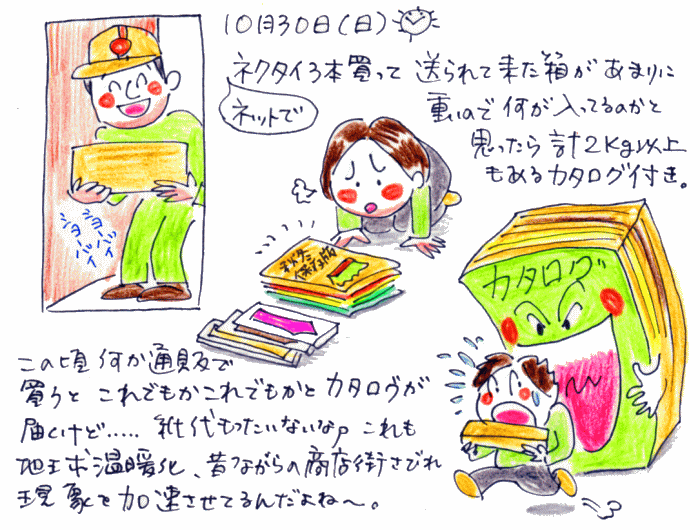 10月30日(日)
ネクタイ3本買って 送られて来た箱が あまりに
ネットで
重いので 何が入ってるのかと
思ったら 計2Kg以上
もあるカタログ付き。
ショーバイ
ショーバイ
カタログ
この頃 何か通販で
買うと これでもかこれでもかと カタログが
届くけど..... 紙代もったいないな。これも
地王求温暖化、昔ながらの商店街さびれ
現象を加速させてるんだよね〜。